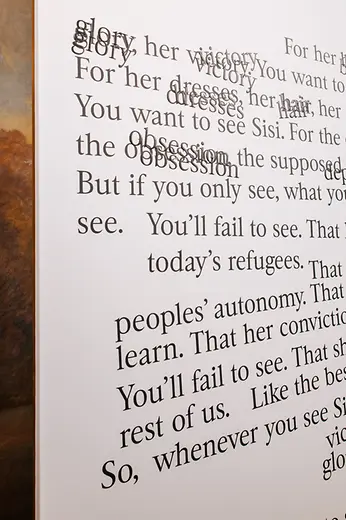 glory
glory, her victory victory You want to
glory victory For her
For her dresses, her hair, her
dresses hair
You want to see Sisi. For the
obsession
the obsession, the supposed
obsession
But if you only see, what
see. You'll fail to see. That
today's refugees. That
peoples' autonomy. That
learn. That her
You'll fail to see. That
rest of us. Like the
So, whenever you see